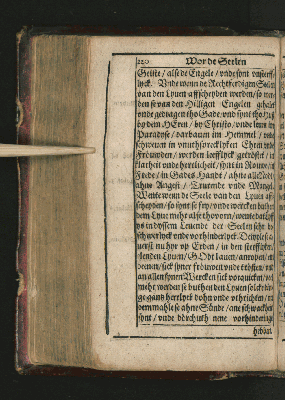 220 Wor de Seelen
Geiste / alse de Engele / unde sint unsterff
lyck. Unde wenn de Rechtferdigen Seelen
van den Lyven affscheyden werden / so wer
den se van den Hilligen Engelen gehalet
unde gedragen tho Gade / und sint tho Huß
by dem HEren / by Christo / unde leven im
Paradyse / darbaven im Hemmel / unde
schweven in unuthsprecklyken Ehren unde
Fröuwden / werden leefflyck getröstet / in
klarheit unde herrlicheit / sint in Rouwe / im
Frede / in Gades Handt / ahne alle Noth
ahne Angest / Trurende unde Mangel.
Wente wenn de Seele van den Lyven aff
scheyden / so sint se fry / unde stercker buthen
dem Lyve mehr alse thovorn / wente dat Lyff
ys in dyssem Levende der Seelen sehr be
schwerlyck unde vorhinderlyck. De wyle se
uerst nu hyr up Erden / in dem sterff
lenden Lyven / GOdt laven / anropen /
deenen / sick syner fröuwen unde trösten /
an allen synen Wercken sick vorgnöcken /
mehr werden se buthen den Lyven solckes
ganz herrlyck dohn unde uthrichten /
dem mahle se ahne Sünde / ane schwackheit
sint / unde dörch uth nene vorhinderinge
hebben